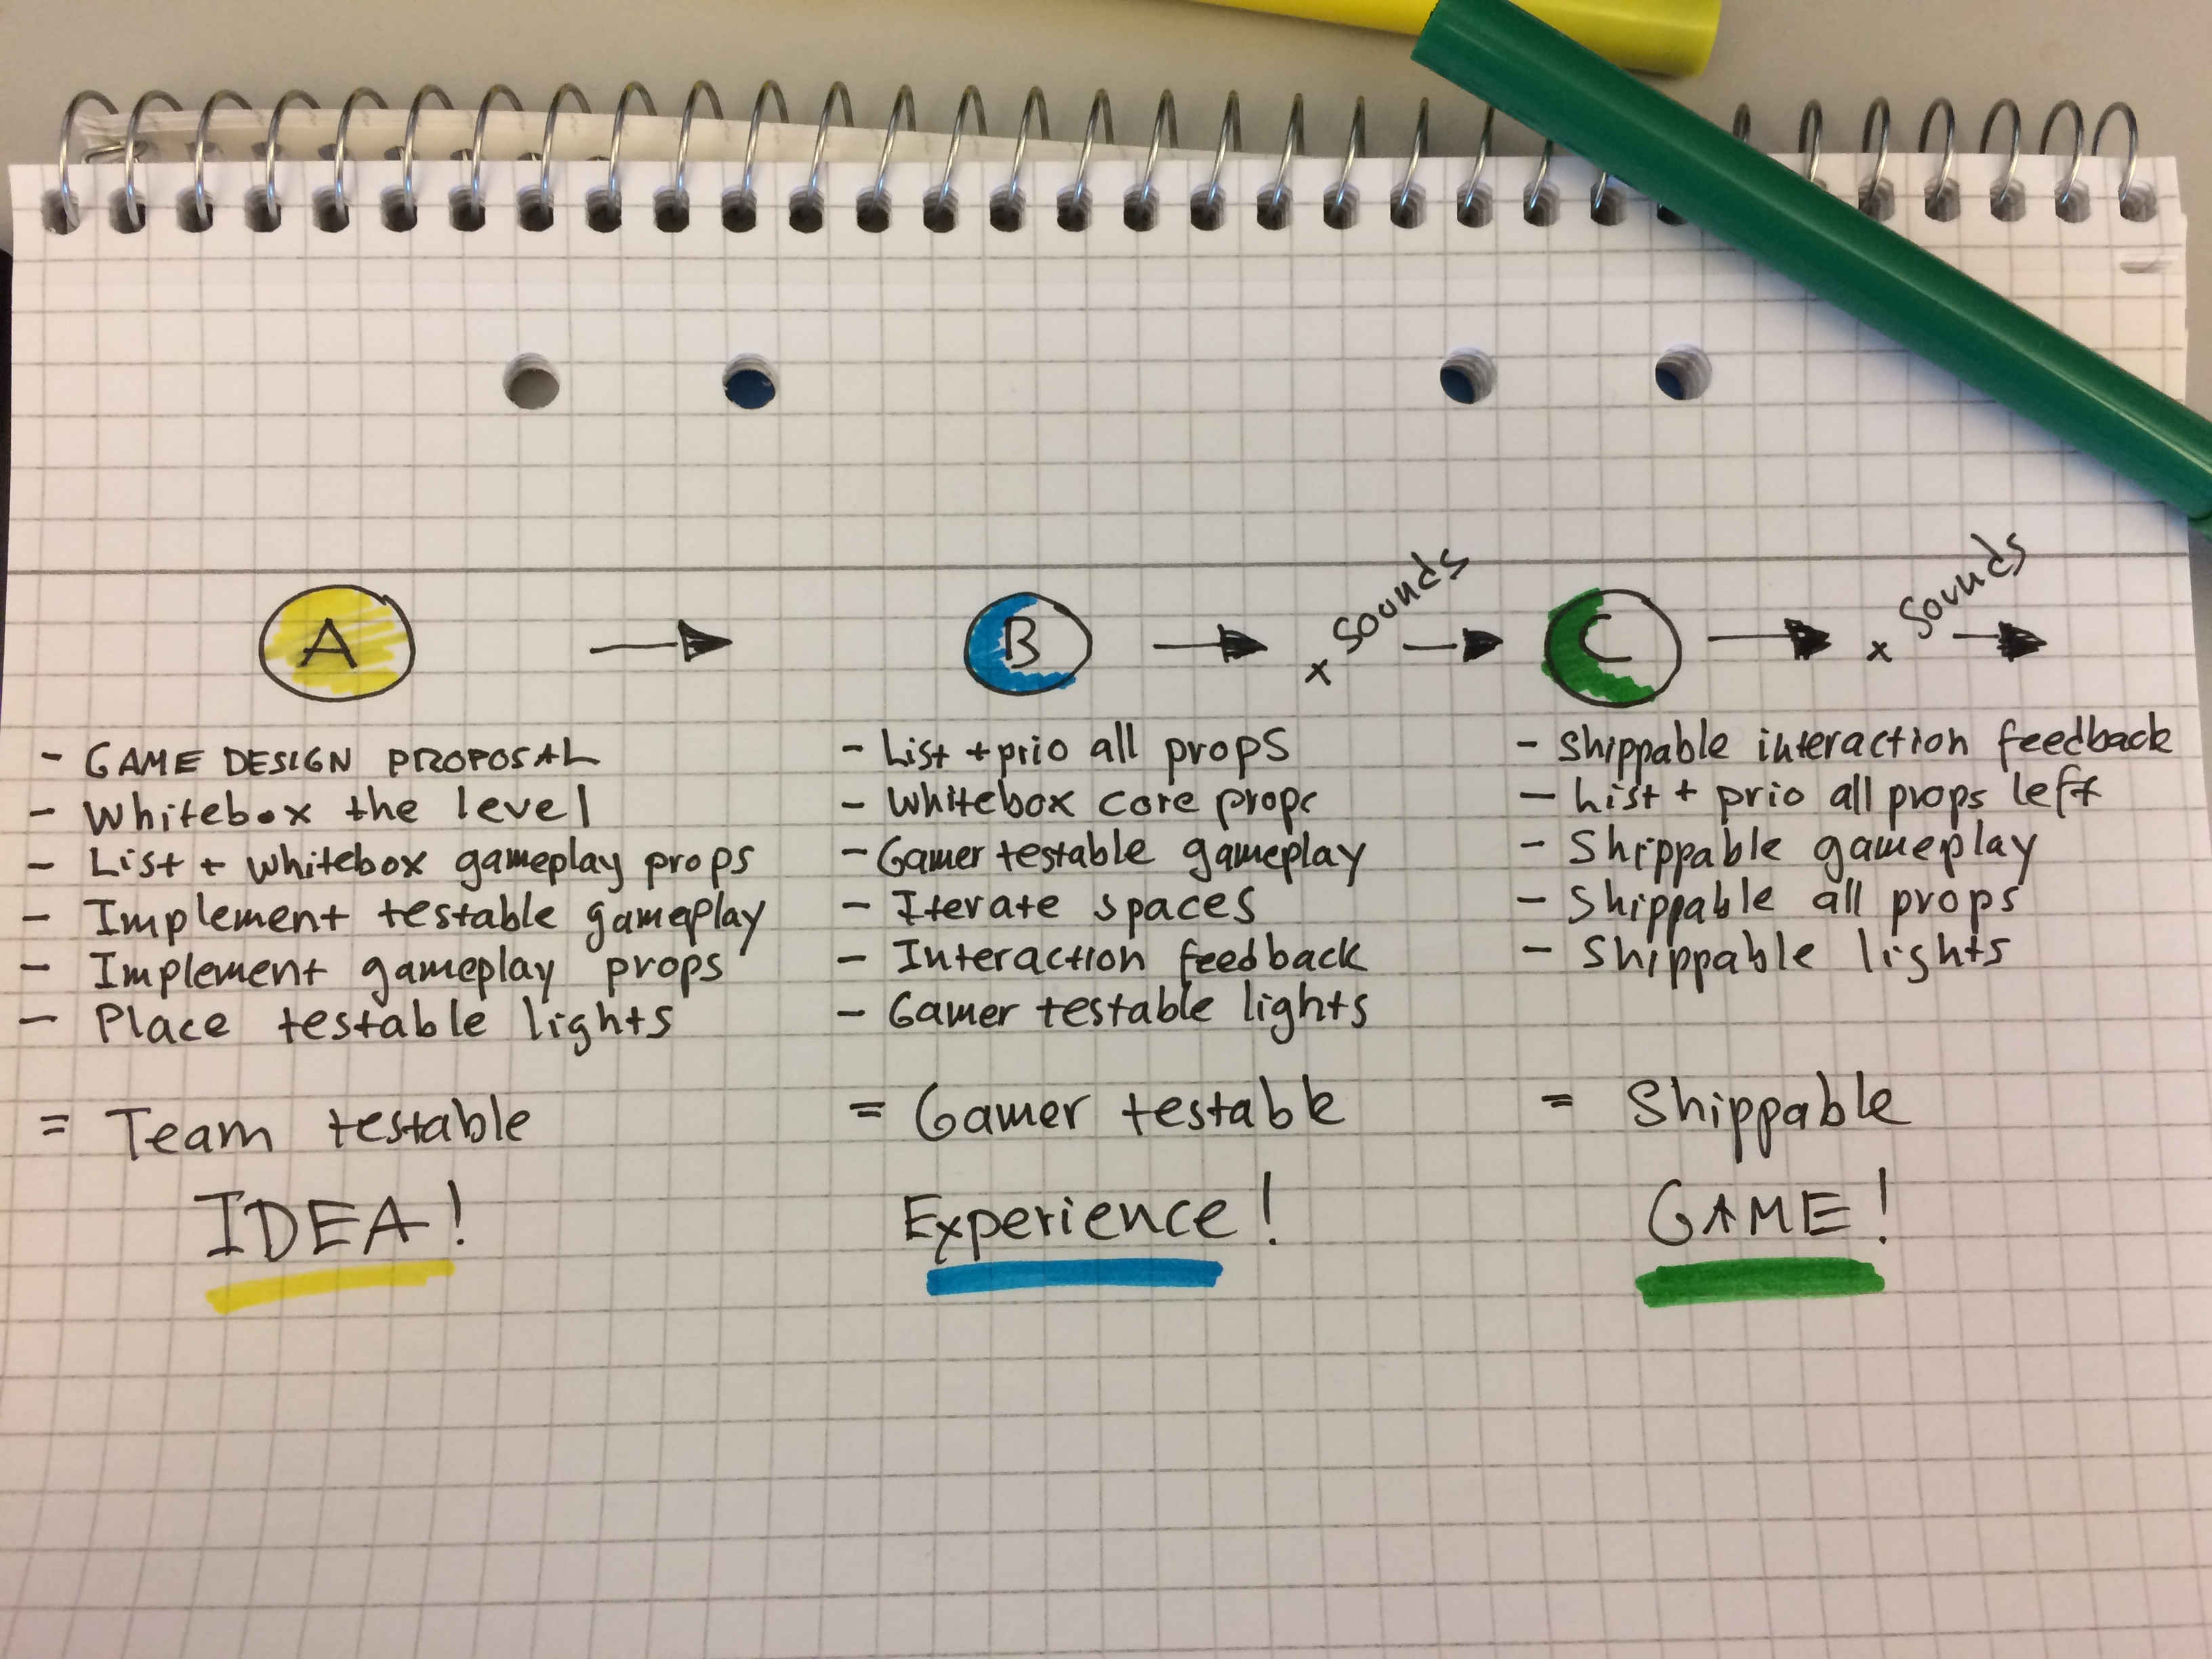 A
B
x Sounds
C
x Sounds
- GAME DESIGN PROPOSAL
- Whitebox the level
- List + whitebox gameplay props
- Implement testable gameplay
- Implement gameplay props
- Place testable lights
= Team testable
IDEA!
- List + prio all props
- Whitebox core props
- Gamer testable gameplay
- Iterate spaces
- Interaction feedback
- Gamer testable lights
= Gamer testable
Experience!
- Shippable interaction feedback
- List + prio all props left
- Shippable gameplay
- Shippable all props
- Shippable lights
= Shippable
GAME!